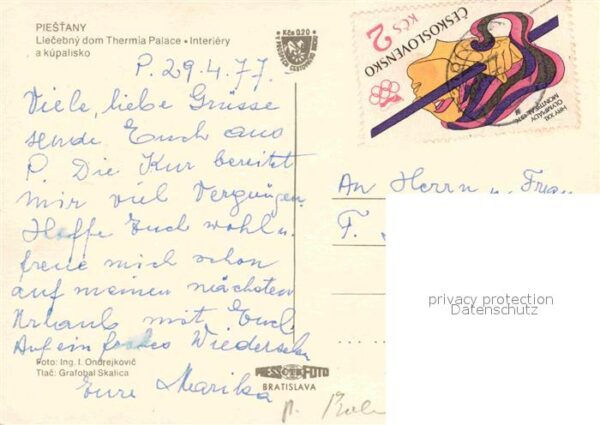 PIEŠŤANY
Liečebný dom Thermia Palace • Interiéry
a kúpalisko
Kčs 0,20
P. 29.4.77.
Viele, liebe Grüsse
sende Euch aus
P. Die Kur bereitet
mir viel Vergnügen.
Hoffe Euch wohl u.
freue mich schon
auf meinen nächsten
Urlaub mit Euch.
Auf ein frohes Wiedersehn
Eure Marika
Foto: Ing. I. Ondrejkovič
Tlač: Grafobal Skalica
PRESSFOTO
BRATISLAVA
ČESKOSLOVENSKO
2 KČS
HRY XXI.
OLYMPIÁDY
MONTREAL 1976
An Herrn u. Frau
F.
privacy protection
Datenschutz